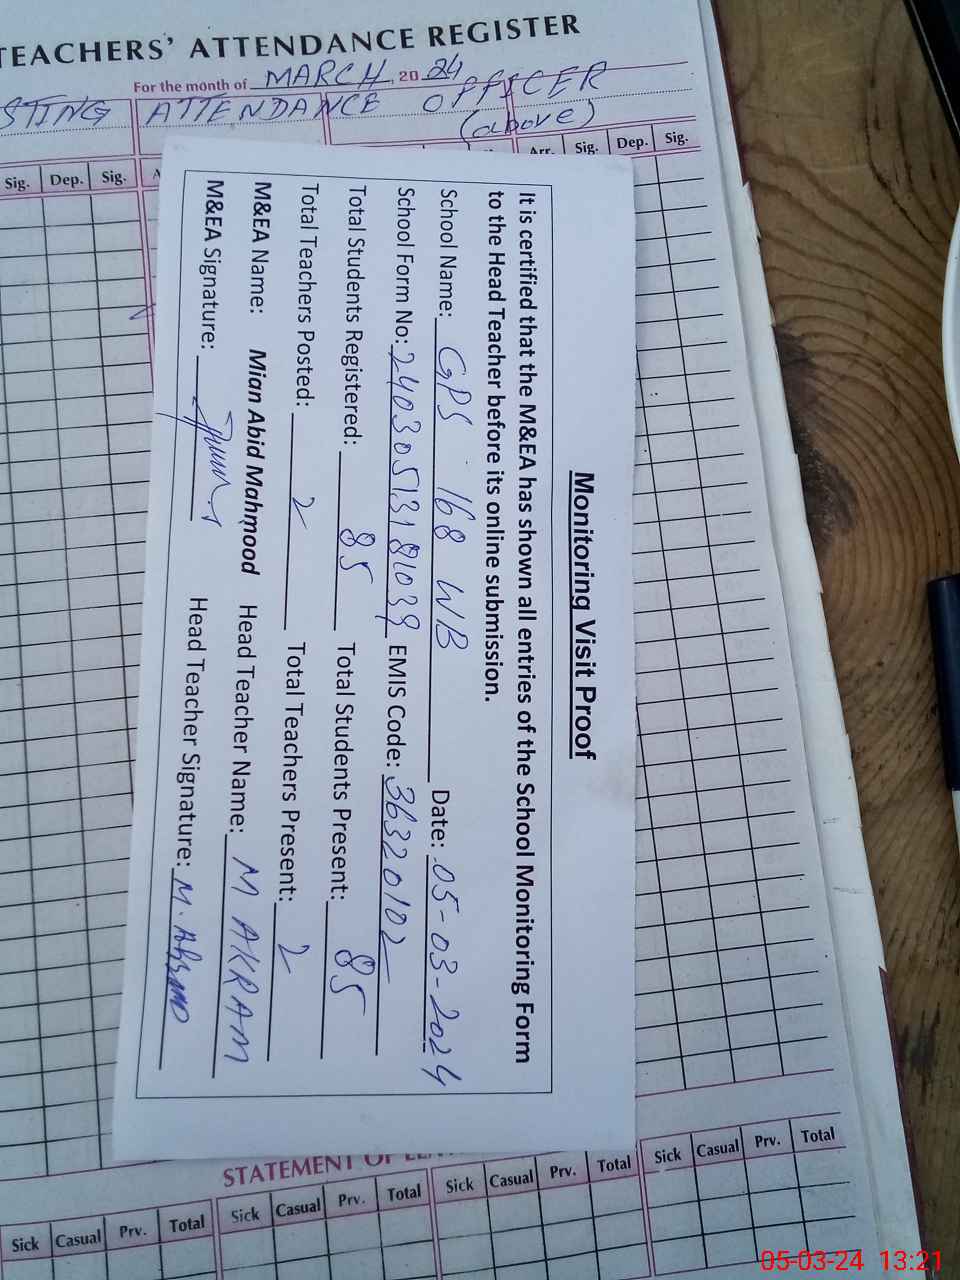 TEACHERS' ATTENDANCE REGISTER
For the month of MARCH, 2024
STING ATTENDANCE OFFICER
(above)
Sig. Dep. Sig. Arr. Sig. Dep. Sig.
Monitoring Visit Proof
It is certified that the M&EA has shown all entries of the School Monitoring Form
to the Head Teacher before its online submission.
School Name: GPS 168 WB Date: 05-03-2024
School Form No: EMIS Code: 36320102
Total Students Registered: 85 Total Students Present: 85
Total Teachers Posted: 2 Total Teachers Present: 2
M&EA Name: Mian Abid Mahmood Head Teacher Name: M AKRAM
M&EA Signature: Head Teacher Signature:
STATEMENT OF
Sick Casual Prv. Total Sick Casual Prv. Total Sick Casual Prv. Total Sick Casual Prv. Total
05-03-24 13:21